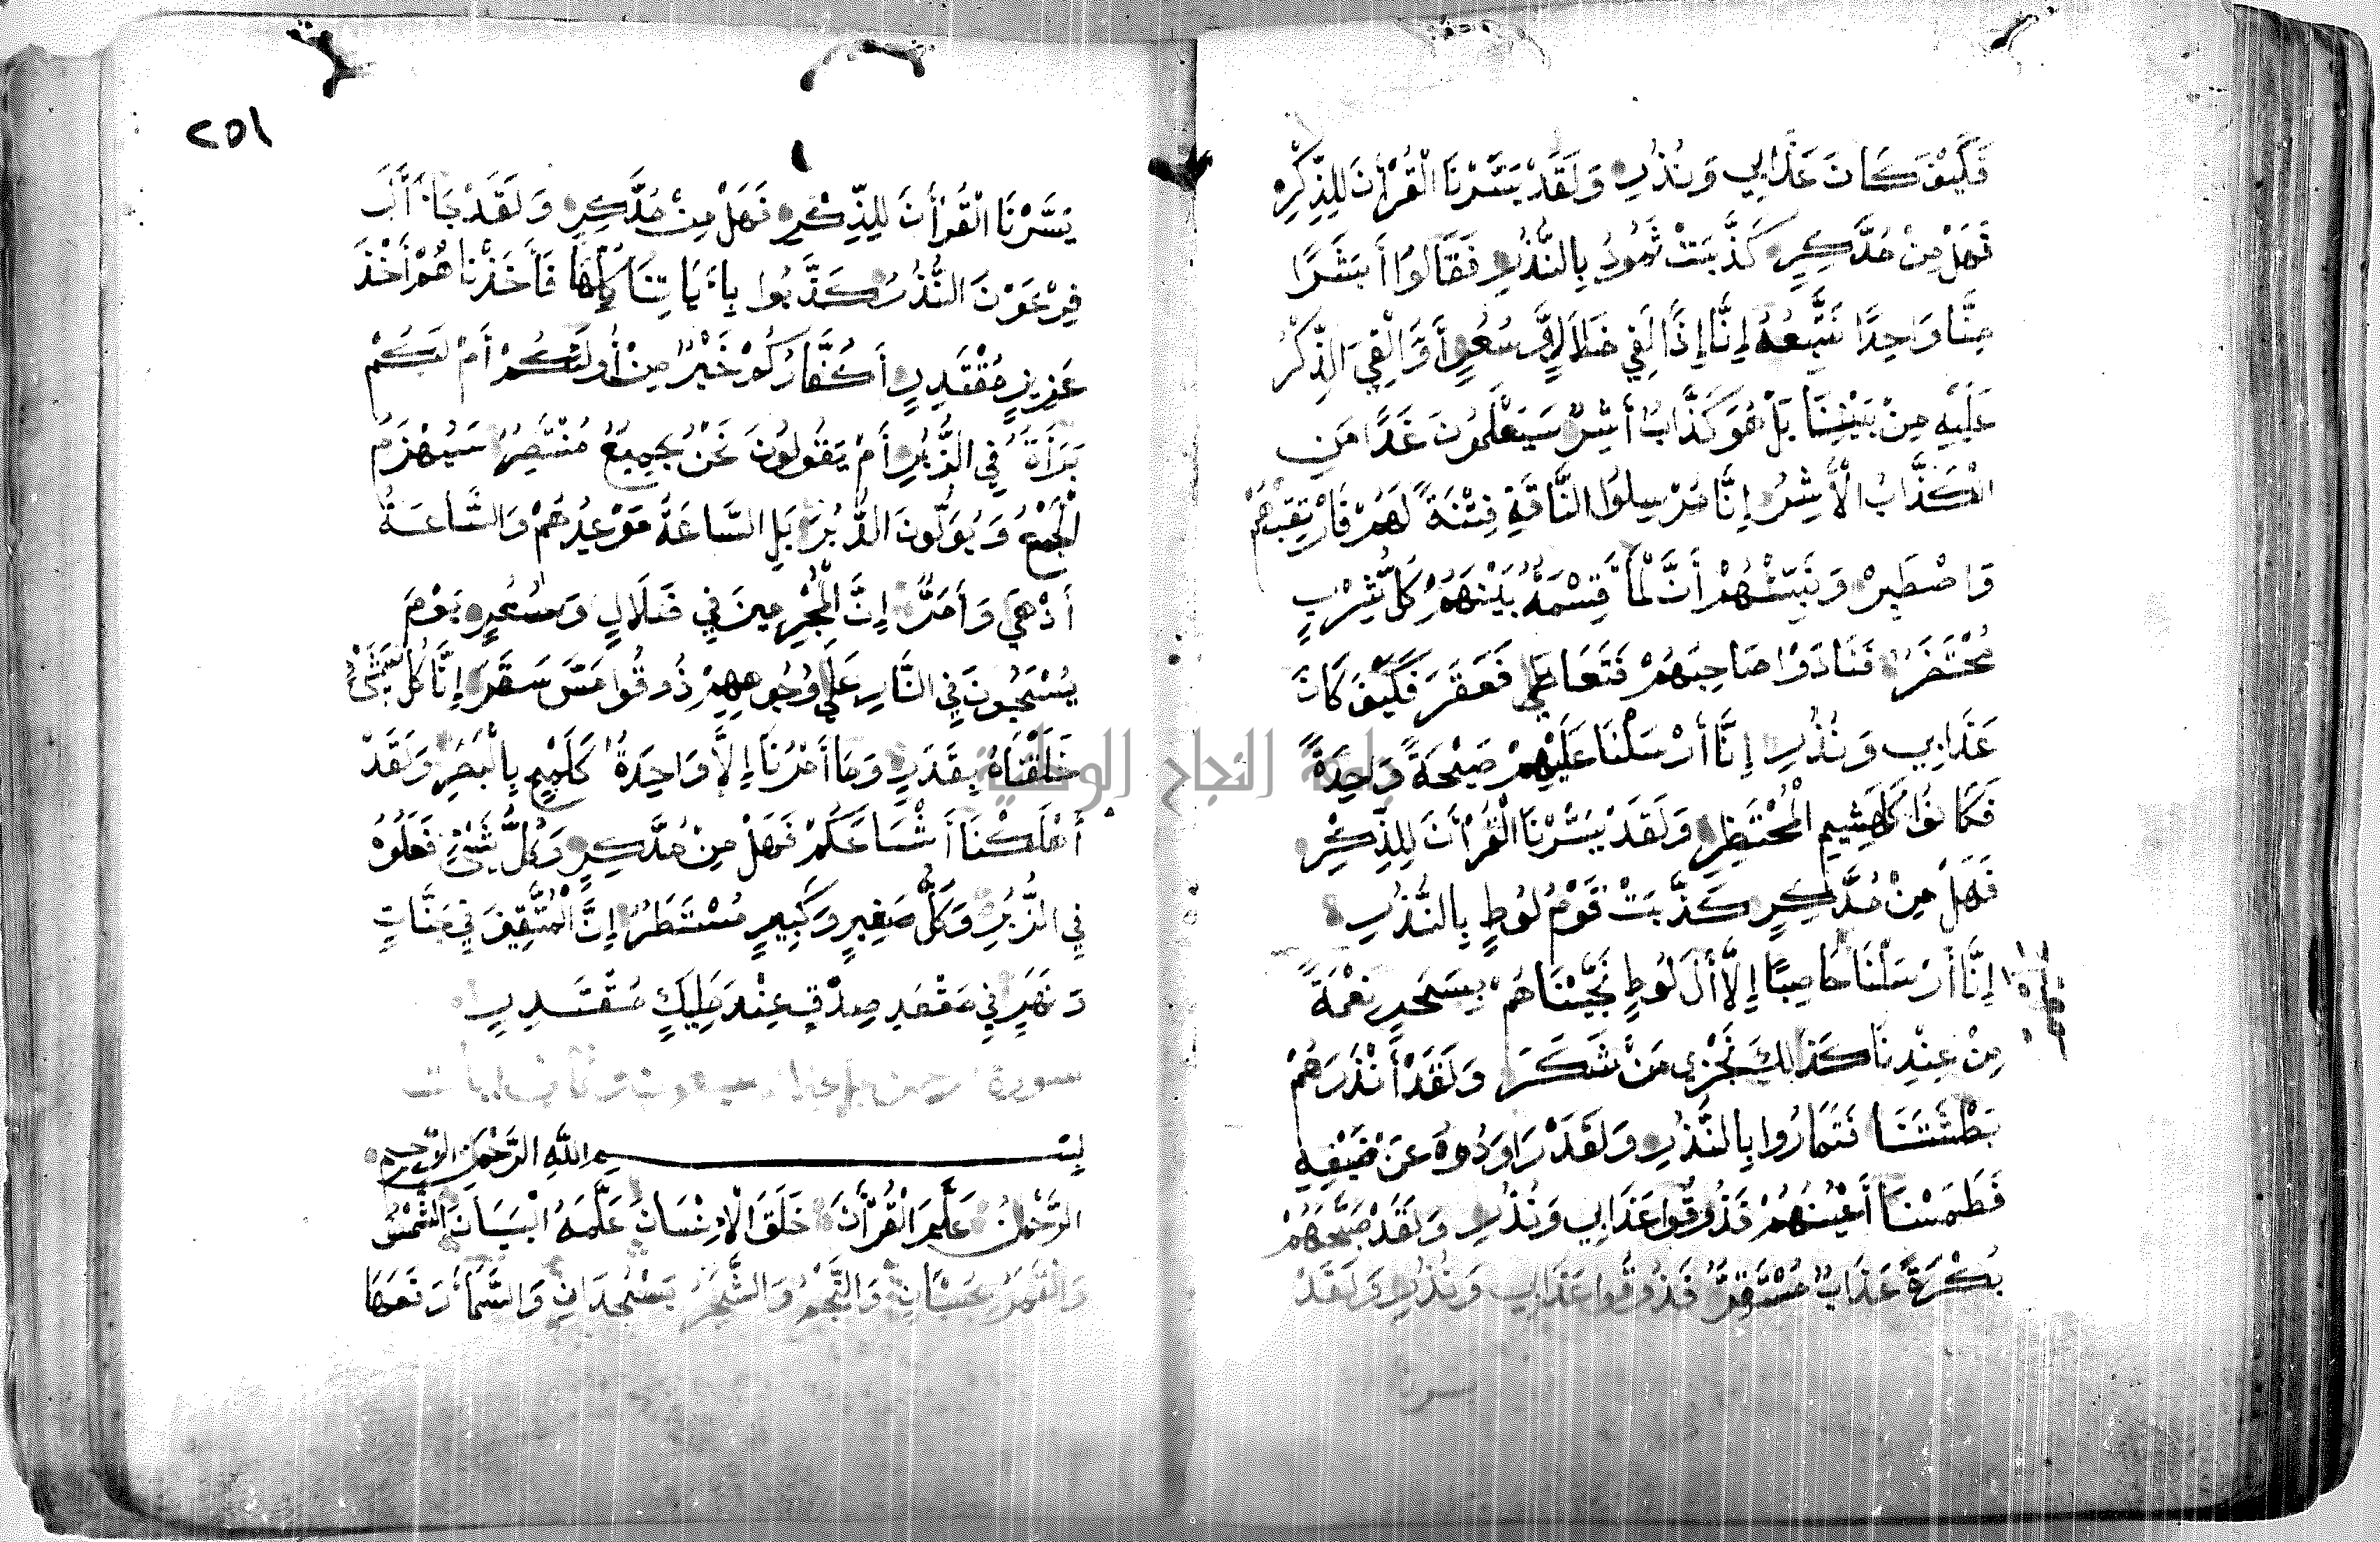 فَكَيْفَ كَانَ عَذَابِي وَنُذُرِ وَلَقَدْ يَسَّرْنَا الْقُرْأَنَ لِلذِّكْرِ
فَهَلْ مِنْ مُدَّكِرٍ كَذَّبَتْ ثَمُودُ بِالنُّذُرِ فَقَالُوا أَبَشَرًا
مِنَّا وَاحِدًا نَتَّبِعُهُ إِنَّا إِذًا لَفِي ضَلَالٍ وَسُعُرٍ أَؤُلْقِيَ الذِّكْرُ
عَلَيْهِ مِنْ بَيْنِنَا بَلْ هُوَ كَذَّابٌ أَشِرٌ سَيَعْلَمُونَ غَدًا مَنِ
الْكَذَّابُ الْأَشِرُ إِنَّا مُرْسِلُوا النَّاقَةِ فِتْنَةً لَهُمْ فَارْتَقِبْهُمْ
وَاصْطَبِرْ وَنَبِّئْهُمْ أَنَّ الْمَاءَ قِسْمَةٌ بَيْنَهُمْ كُلُّ شِرْبٍ
مُحْتَضَرٌ فَنَادَوْا صَاحِبَهُمْ فَتَعَاطَى فَعَقَرَ فَكَيْفَ كَانَ
عَذَابِي وَنُذُرِ إِنَّا أَرْسَلْنَا عَلَيْهِمْ صَيْحَةً وَاحِدَةً
فَكَانُوا كَهَشِيمِ الْمُحْتَظِرِ وَلَقَدْ يَسَّرْنَا الْقُرْأَنَ لِلذِّكْرِ
فَهَلْ مِنْ مُدَّكِرٍ كَذَّبَتْ قَوْمُ لُوطٍ بِالنُّذُرِ
إِنَّا أَرْسَلْنَا حَاصِبًا إِلَّا أَلَ لُوطٍ نَجَّيْنَاهُمْ بِسَحَرٍ نِعْمَةً
مِنْ عِنْدِنَا كَذَالِكَ نَجْزِي مَنْ شَكَرَ وَلَقَدْ أَنْذَرَهُمْ
بَطْشَتَنَا فَتَمَارُوا بِالنُّذُرِ وَلَقَدْ رَاوَدُوهُ عَنْ ضَيْفِهِ
فَطَمَسْنَا أَعْيُنَهُمْ فَذُوقُوا عَذَابِي وَنُذُرِ وَلَقَدْ صَبَّحَهُمْ
بُكْرَةً عَذَابٌ مُسْتَقِرٌّ فَذُوقُوا عَذَابِي وَنُذُرِ وَلَقَدْ
٢٥١
يَسَّرْنَا الْقُرْأَنَ لِلذِّكْرِ فَهَلْ مِنْ مُدَّكِرٍ وَلَقَدْ جَاءَ أَلَ
فِرْعَوْنَ النُّذُرُ كَذَّبُوا بِأَيَاتِنَا كُلِّهَا فَأَخَذْنَاهُمْ أَخْذَ
عَزِيزٍ مُقْتَدِرٍ أَكُفَّارُكُمْ خَيْرٌ مِنْ أُولَئِكُمْ أَمْ لَكُمْ
بَرَاءَةٌ فِي الزُّبُرِ أَمْ يَقُولُونَ نَحْنُ جَمِيعٌ مُنْتَصِرٌ سَيُهْزَمُ
الْجَمْعُ وَيُوَلُّونَ الدُّبُرَ بَلِ السَّاعَةُ مَوْعِدُهُمْ وَالسَّاعَةُ
أَدْهَى وَأَمَرُّ إِنَّ الْمُجْرِمِينَ فِي ضَلَالٍ وَسُعُرٍ يَوْمَ
يُسْحَبُونَ فِي النَّارِ عَلَى وُجُوهِهِمْ ذُوقُوا مَسَّ سَقَرَ إِنَّا كُلَّ شَيْءٍ
خَلَقْنَاهُ بِقَدَرٍ وَمَا أَمْرُنَا إِلَّا وَاحِدَةٌ كَلَمْحٍ بِالْبَصَرِ وَلَقَدْ
أَهْلَكْنَا أَشْيَاعَكُمْ فَهَلْ مِنْ مُدَّكِرٍ وَكُلُّ شَيْءٍ فَعَلُوهُ
فِي الزُّبُرِ وَكُلُّ صَغِيرٍ وَكَبِيرٍ مُسْتَطَرٌ إِنَّ الْمُتَّقِينَ فِي جَنَّاتٍ
وَنَهَرٍ فِي مَقْعَدِ صِدْقٍ عِنْدَ مَلِيكٍ مُقْتَدِرٍ
بِسْمِ اللَّهِ الرَّحْمَنِ الرَّحِيمِ
الرَّحْمَنُ عَلَّمَ الْقُرْأَنَ خَلَقَ الْإِنْسَانَ عَلَّمَهُ الْبَيَانَ الشَّمْسُ
وَالْقَمَرُ بِحُسْبَانٍ وَالنَّجْمُ وَالشَّجَرُ يَسْجُدَانِ وَالسَّمَاءَ رَفَعَهَا
جامعة النجاح الوطنية